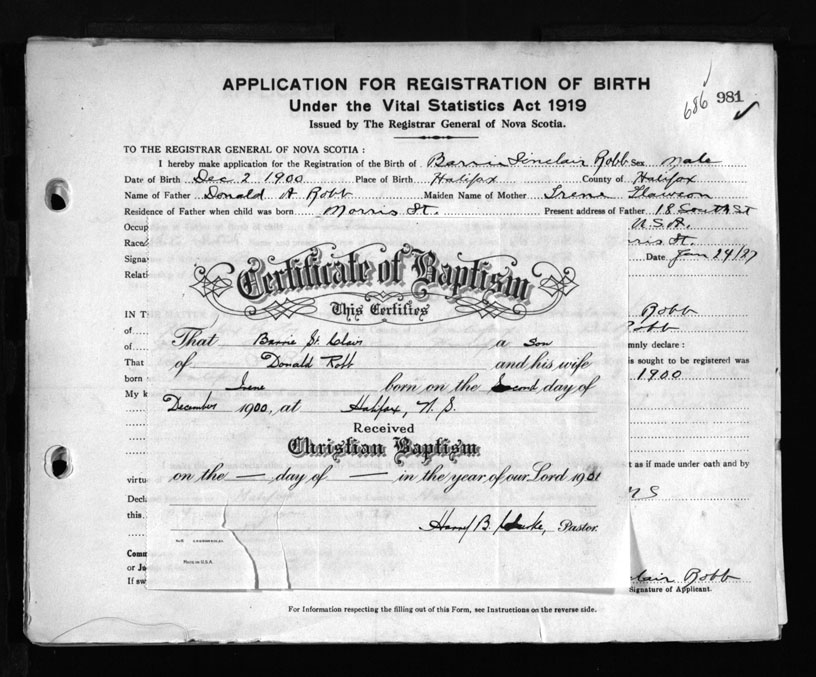 APPLICATION FOR REGISTRATION OF BIRTH
686 981
Under the Vital Statistics Act 1919
Issued by The Registrar General of Nova Scotia.
TO THE REGISTRAR GENERAL OF NOVA SCOTIA :
I hereby make application for the Registration of the Birth of Barrie Sinclair Robb Sex Male
Date of Birth Dec 2 1900 Place of Birth Halifax County of Halifax
Name of Father Donald A Robb Maiden Name of Mother Irene
Residence of Father when child was born Morris St. Present address of Father 18 South St
Occup U.S.A.
Race rris St.
Signa Date Jan 24/27
Relati
Certificate of Baptism
This Certifies
IN T Robb
of obb
That Barrie St. Clair a son
of mnly declare :
of Donald Robb and his wife
That is sought to be registered was
Irene born on the Second day of
born 1900
My k
December 1900, at Halifax, N. S.
Received
Christian Baptism
t as if made under oath and by
on the — day of — in the year of our Lord 1901
virtu
Decl
this
Harry B. Pastor.
Made in U.S.A.
Comm
or Jo
If sw
clair Robb
Signature of Applicant.
For Information respecting the filling out of this Form, see Instructions on the reverse side.